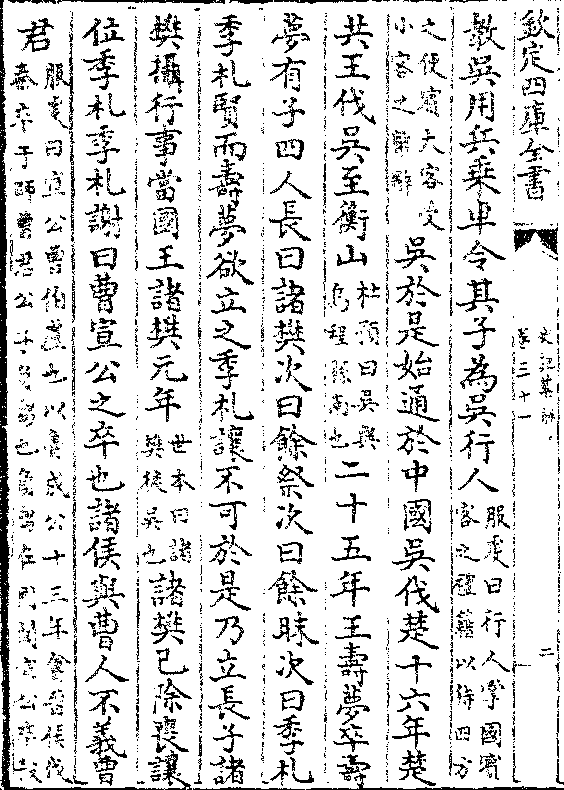 欽定四庫全書
史記集解
卷三十一
二
教吳用兵乘車令其子為吳行人服虔曰行人掌國賓客之禮籍以待四方
之使賓大客受小客之幣辭吳於是始通於中國吳伐楚十六年楚
共王伐吳至衡山杜預曰吳興烏程縣南也二十五年王壽夢卒壽
夢有子四人長曰諸樊次曰餘祭次曰餘眛次曰季札
季札賢而壽夢欲立之季札讓不可於是乃立長子諸
樊攝行事當國王諸樊元年世本曰諸樊徙吳也諸樊已除喪讓
位季札季札謝曰曹宣公之卒也諸侯與曹人不義曹
君服虔曰宣公曹伯廬也以魯成公十三年會晉侯伐秦卒于師曹君公子負芻也負芻在國聞宣公卒殺